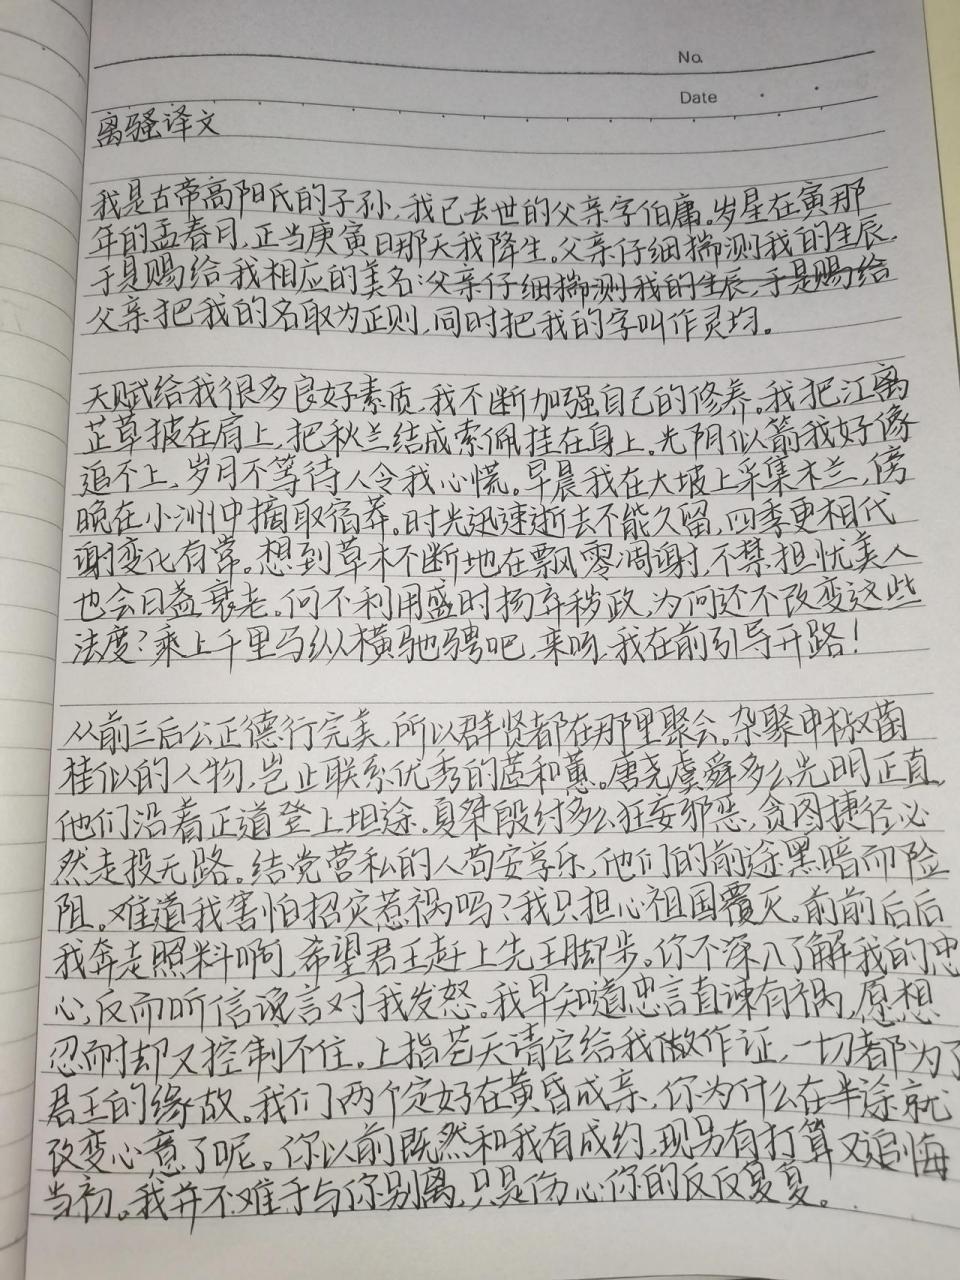 No.
Date
离骚译文
我是古帝高阳氏的子孙,我已去世的父亲字伯庸。岁星在寅那
年的孟春月,正当庚寅日那天我降生。父亲仔细揣测我的生辰,
于是赐给我相应的美名:父亲仔细揣测我的生辰,于是赐给
父亲把我的名取为正则,同时把我的字叫作灵均。
天赋给我很多良好素质,我不断加强自己的修养。我把江离
芷草披在肩上,把秋兰结成索佩挂在身上。光阴似箭我好像
追不上,岁月不等待人令我心慌。早晨我在大坡上采集木兰,傍
晚在小洲中摘取宿莽。时光迅速逝去不能久留,四季更相代
谢变化有常。想到草木不断地在飘风零凋谢,不禁担忧美人
也会日益衰老。何不利用盛时扬弃秽政,为何还不改变这些
法度?乘上千里马纵横驰骋吧,来呀,我在前引导开路!
从前三后公正德行完美,所以群贤都在那里聚会。杂聚申椒菌
桂似的人物,岂止联系优秀的茝和蕙。唐尧虞舜多么光明正直,
他们沿着正道登上坦途。夏桀殷纣多么狂妄邪恶,贪图捷径必
然走投无路。结党营私的人苟安享乐,他们的前途黑暗而险
阻。难道我害怕招灾惹祸吗?我只担心祖国覆灭。前前后后
我奔走照料啊,希望君王赶上先王脚步。你不深入了解我的忠
心,反而听信谗言对我发怒。我早知道忠言直谏有祸,愿想
忍耐却又控制不住。上指苍天请它给我做作证,一切都为了
君王的缘故。我们两个定好在黄昏成亲,你为什么在半途就
改变心意了呢。你以前既然和我有成约,现另有打算又追悔
当初。我并不难于与你别离,只是伤心你的反反复复。